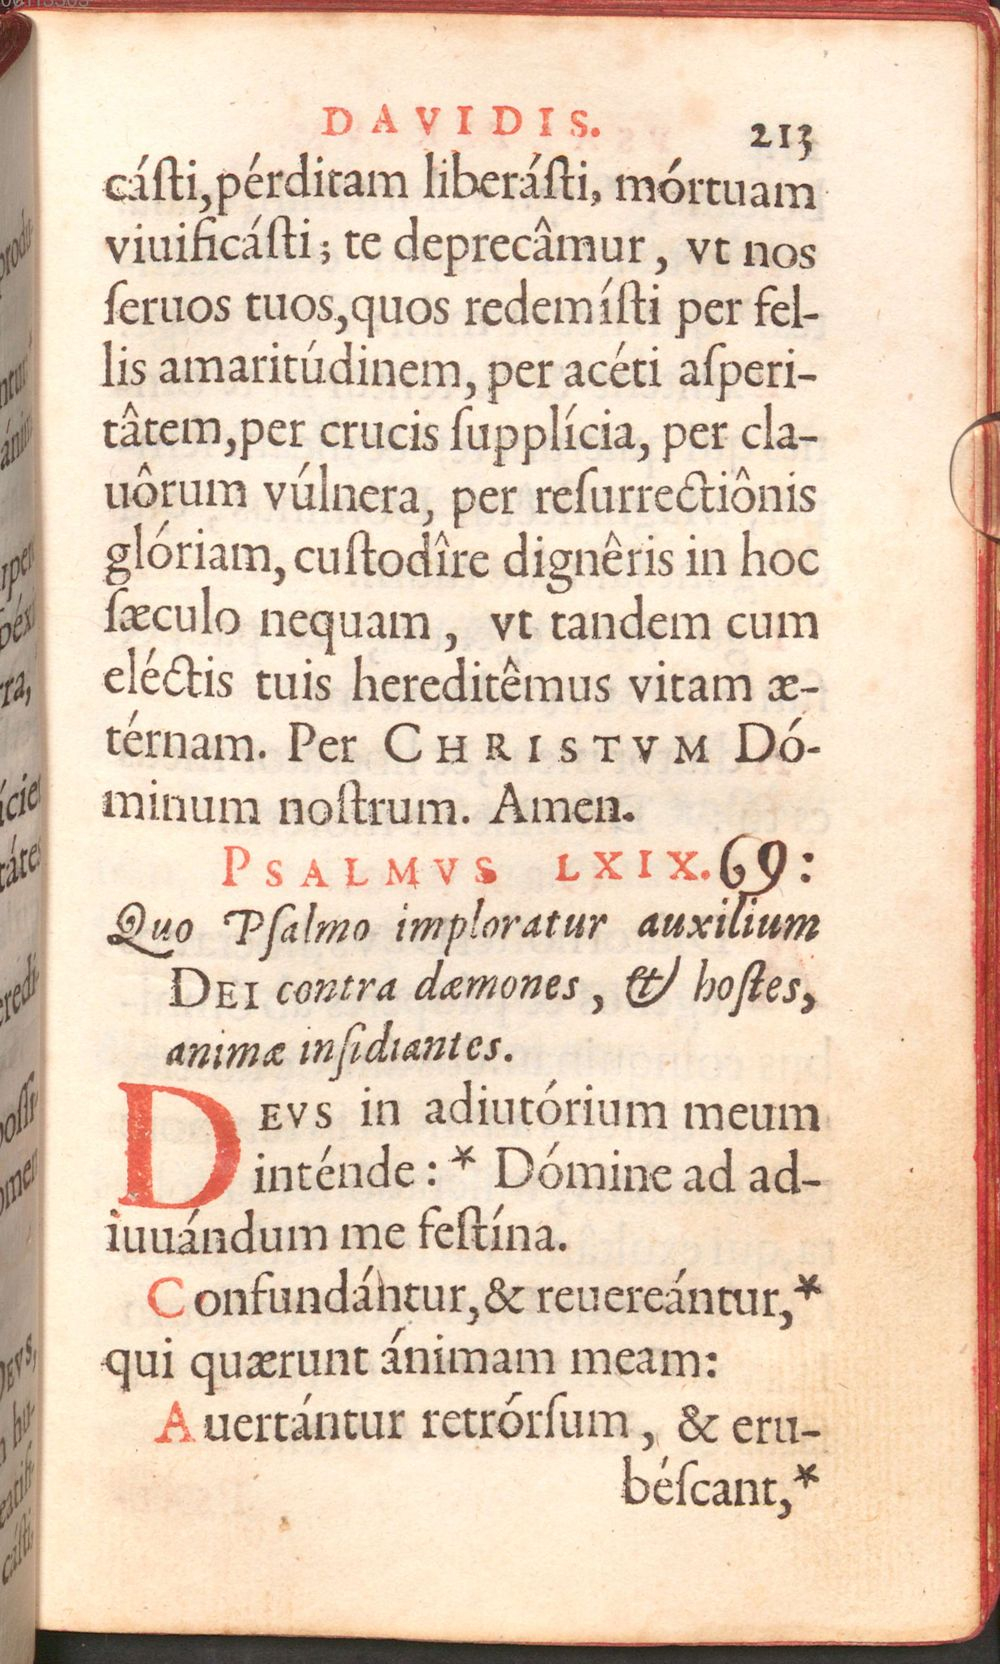 DAVIDIS. 213
cáſti, pérditam liberáſti, mórtuam
viuificáſti; te deprecâmur, vt nos
ſeruos tuos, quos redemíſti per fel-
lis amaritúdinem, per acéti aſperi-
tâtem, per crucis ſupplícia, per cla-
uôrum vúlnera, per reſurrectiônis
glóriam, cuſtodîre dignêris in hoc
ſæculo nequam, vt tandem cum
eléctis tuis hereditêmus vitam æ-
térnam. Per CHRISTVM Dó-
minum noſtrum. Amen.
PSALMVS LXIX. 69:
Quo Pſalmo imploratur auxilium
DEI contra dæmones, & hoſtes,
animæ inſidiantes.
DEVS in adiutórium meum
inténde: * Dómine ad ad-
iuuándum me feſtína.
Confundántur, & reuereántur, *
qui quærunt ánimam meam:
Auertántur retrórſum, & eru-
béſcant, *